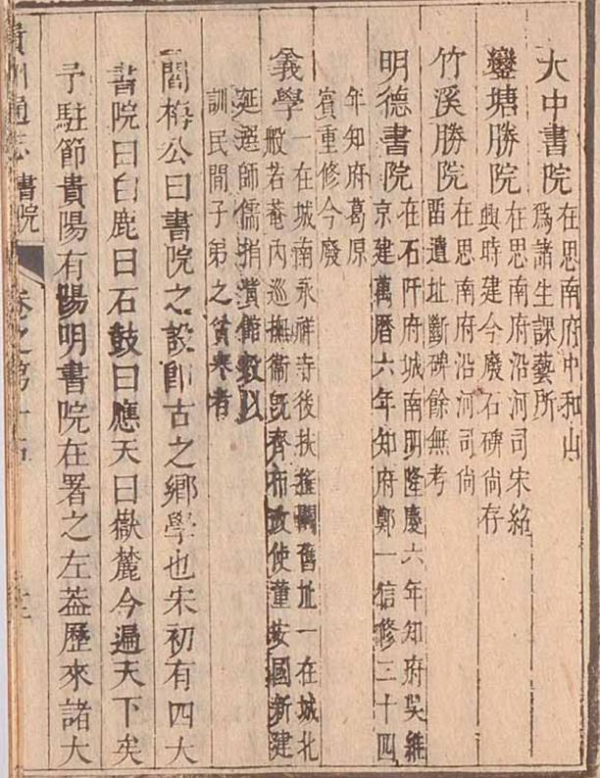 大中書院
在思南府中和山
爲諸生課藝所
鑾塘勝院
在思南府沿河司宋紹
興時建今廢石碑尚存
竹溪勝院
在思南府沿河司尚
畱遺址斷碑餘無考
明德書院
在石阡府城南明隆慶六年知府吳維
京建萬曆六年知府鄭一信修三十四
年知府葛原
賓重修今廢
義學
一在城南永祥寺後扶搖閣舊址一在城北
般若菴內巡撫衛旣齊布政使董安國新建
延選師儒捐資館穀以
訓民間子弟之貧寒者
閻梅公曰書院之設卽古之鄉學也宋初有四大
書院曰白鹿曰石鼓曰應天曰嶽麓今遍天下矣
予駐節貴陽有陽明書院在署之左葢歷來諸大
貴州通志
書院
卷之第十